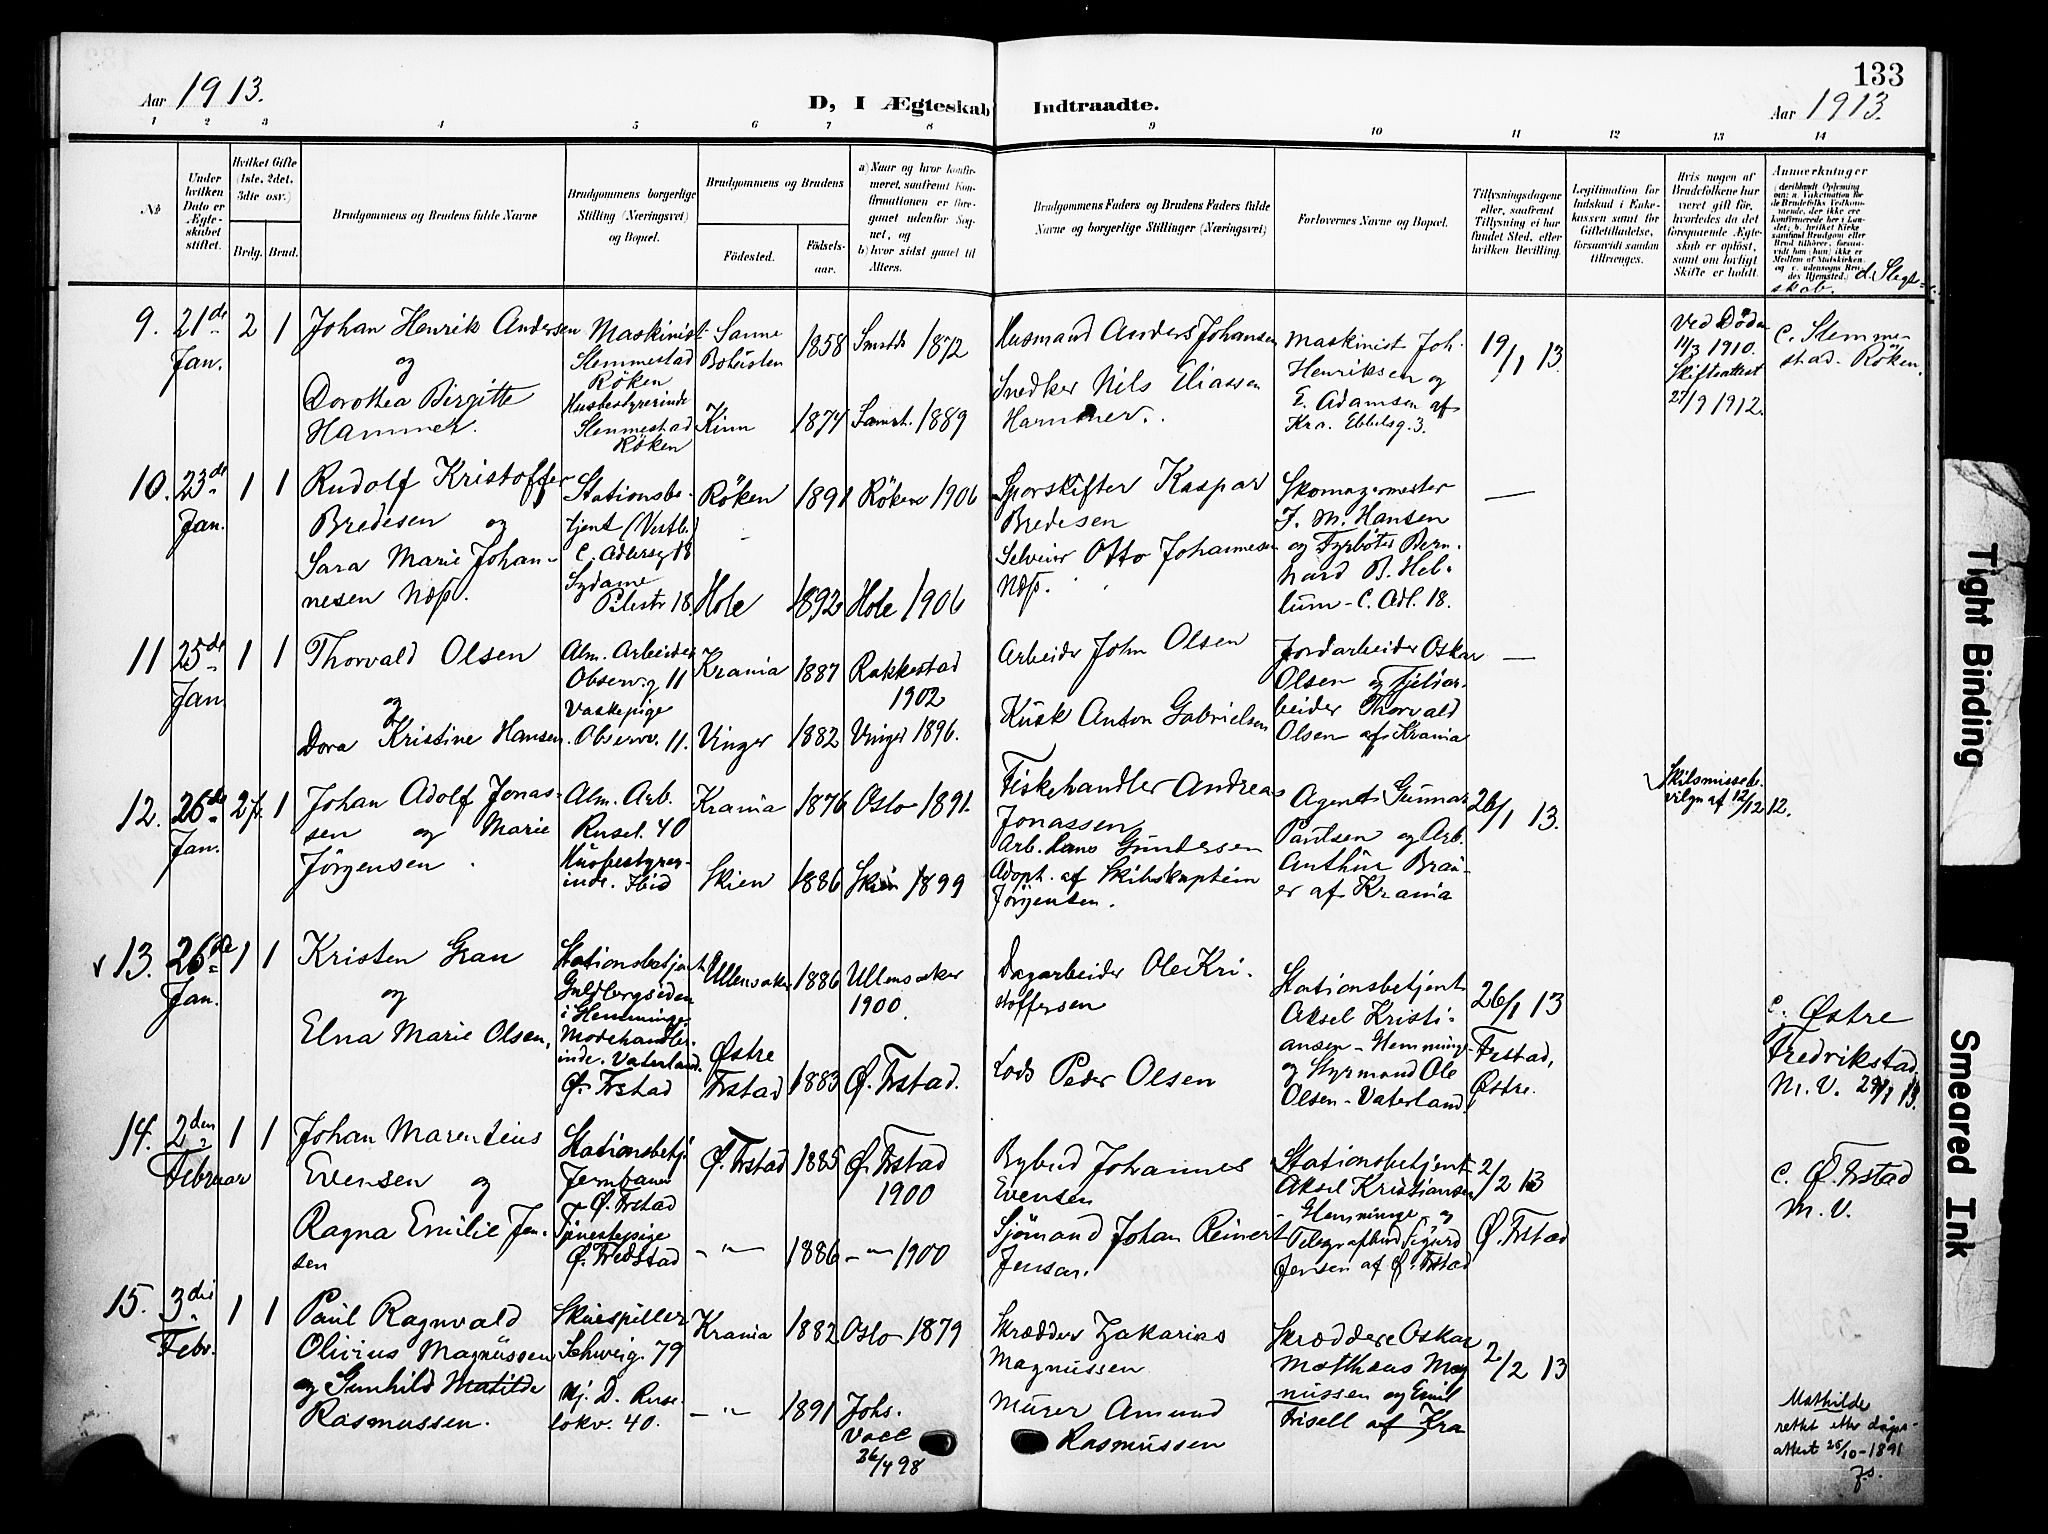 133
Aar 1913.
D, I Ægteskab Indtraadte.
Aar 1913.
1 2 3 4 5 6 7 8 9 10 11 12 13 14
No
Under hvilken Dato er Ægteskabet stiftet.
Hvilket Gifte (1ste, 2det, 3dte osv.)
Brdg. Brud.
Brudgommens og Brudens fulde Navne
Brudgommens borgerlige Stilling (Næringsvei) og Bopæl.
Brudgommens og Brudens
Fødested.
Fødselsaar.
a) Naar og hvor konfirmeret, saafremt Konfirmationen er foregaaet udenfor Sognet, og
b) hvor sidst gaaet til Alters.
Brudgommens Faders og Brudens Faders fulde Navne og borgerlige Stillinger (Næringsvei)
Forlovernes Navne og Bopæl.
Tillysningsdagene eller, saafremt Tillysning ei har fundet Sted, efter hvilken Bevilling.
Legitimation for Indskud i Enkekassen samt for Giftetilladelse, forsaavidt saadan tiltrænges.
Hvis nogen af Brudefolkene har været gift før, hvorledes da det foregaaende Ægteskab er opløst, samt om lovligt Skifte er holdt.
Anmærkninger
d. Slegtskab.
9. 21de Jan. 2 1
Johan Henrik Andersen
og
Dorothea Birgitte
Hammer.
Maskinist
Slemmestad
Röken
Husbestyrerinde
Slemmestad
Röken
Sanne
Bohuslen
Kinn
1858
1874
1872
1889
Husmand Anders Johansen
Snedker Nils Eliassen
Hammer.
Maskinist Joh.
Henriksen og
E. Adamsen af
Kra. Ebbelsg. 3.
19/1 13.
Ved Døden
11/3 1910.
Skifteattest
27/9 1912.
C. Slemmestad Röken.
10. 23de Jan. 1 1
Rudolf Kristoffer
Bredesen og
Sara Marie Johannesen Næss.
Stationsbetjent (Vestb.)
C. Adlersg 18
Sydame
Pilestr 18
Röken
Hole
1891
1892
Röken 1906
Hole 1906
Sporskifter Kaspar
Bredesen
Selveier Otto Johannesen
Næss.
Skomagermester
J. M. Hansen
og Fyrböter Bernhard B. Hellum - C. Adl. 18.
—
11 25de Jan. 1 1
Thorvald Olsen
og
Dora Kristine Hansen.
Alm. Arbeider
Observ.g 11
Vaskepige
Observ. 11.
Krania
Vinger
1887
1882
Rakkestad
1902
Vinger 1896.
Arbeider John Olsen
Kusk Anton Gabrielsen
Jordarbeider Oskar
Olsen og
Thorvald
Olsen af Krania
—
12. 26de Jan. 2 fr. 1
Johan Adolf Jonassen og Marie
Jörgensen.
Alm. Arb.
Rusel. 40
Husbestyrerinde. Ibid
Krania
Skien
1876
1886
Oslo 1891.
Skien 1899
Fiskehandler Andreas
Jonassen
Arb. Gundersen
Adopt. af Skibskaptein
Jörgensen.
Agent Gunnar
Paulsen og Arb.
Arthur Brauer af Krania
26/1 13.
Skilsmissebevilgn af 12/12 12.
13. 26de Jan. 1 1
Kristen Gran
og
Elna Marie Olsen.
Stationsbetjent
Guldbergseden
i Hemminge
Modehandlerinde. Vaterland.
Ø. Frstad
Ullensaker
Østre
Frstad
1886
1883
Ullensaker
1900.
Ø. Frstad.
Dagarbeider Ole Kristoffersen
Lods Peder Olsen
Stationsbetjent
Aksel Kristiansen - Hemminge
og Styrmand Ole
Olsen - Vaterland
26/1 13
Frstad,
Østre.
C. Østre
Fredrikstad.
M. V. 29/1 13.
14. 2den Februar 1 1
Johan Marentius
Evensen og
Ragna Emilie Jensen
Stationsbetj.
Jernbanen
Ø. Frstad
Tjenestepige
Ø. Fredstad
Ø. Frstad
— " —
1885
1886
Ø. Frstad
1900
— " — 1900
Bybud Johannes
Evensen
Sjömand Johan Reinert
Jensen.
Stationsbetjent
Aksel Kristiansen
- Hemminge og
Telegrafbud Sigurd
Jensen af Ø. Frstad
2/2 13
Ø. Frstad
C. Ø. Frstad
M. V.
15. 3die Febr. 1 1
Paul Ragnvald
Olivius Magnussen
og Gunhild Matilde
Rasmussen.
Skuespiller
Schweig. 79
Hj. D. Ruselökv. 40.
Krania
— " —
1882
1891
Oslo 1879
Johs.
Vacc
26/4 98
Skrædder Zakarias
Magnussen
Murer Amund
Rasmussen
Skræddere Oskar
Matthæus Magnussen og Emil
Frisell af Kra
2/2 13
Mathilde
rettet efter dåpsattest 25/10-1891
Tight Binding
Smeared Ink